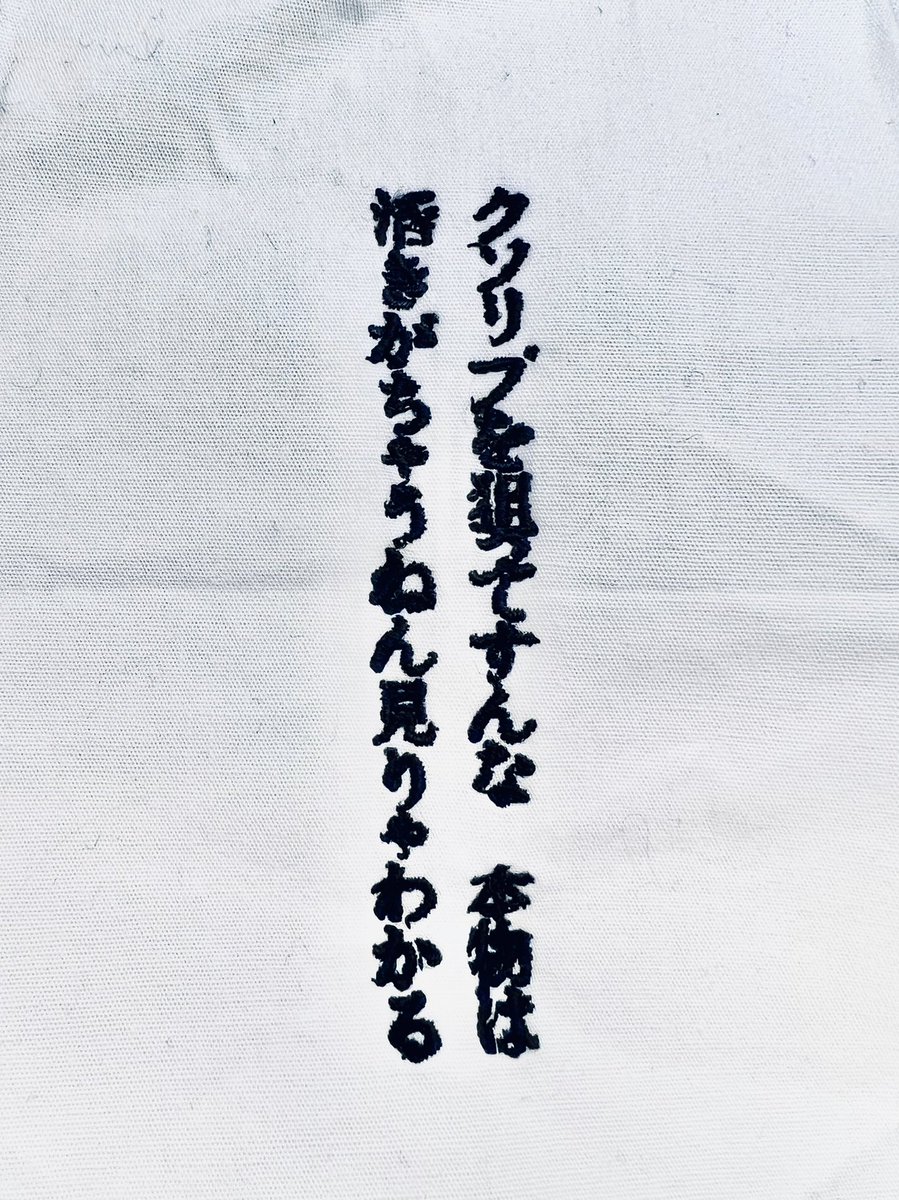 クソリプを狙ってすんな　本物は
活きがちゃうねん見りゃわかる